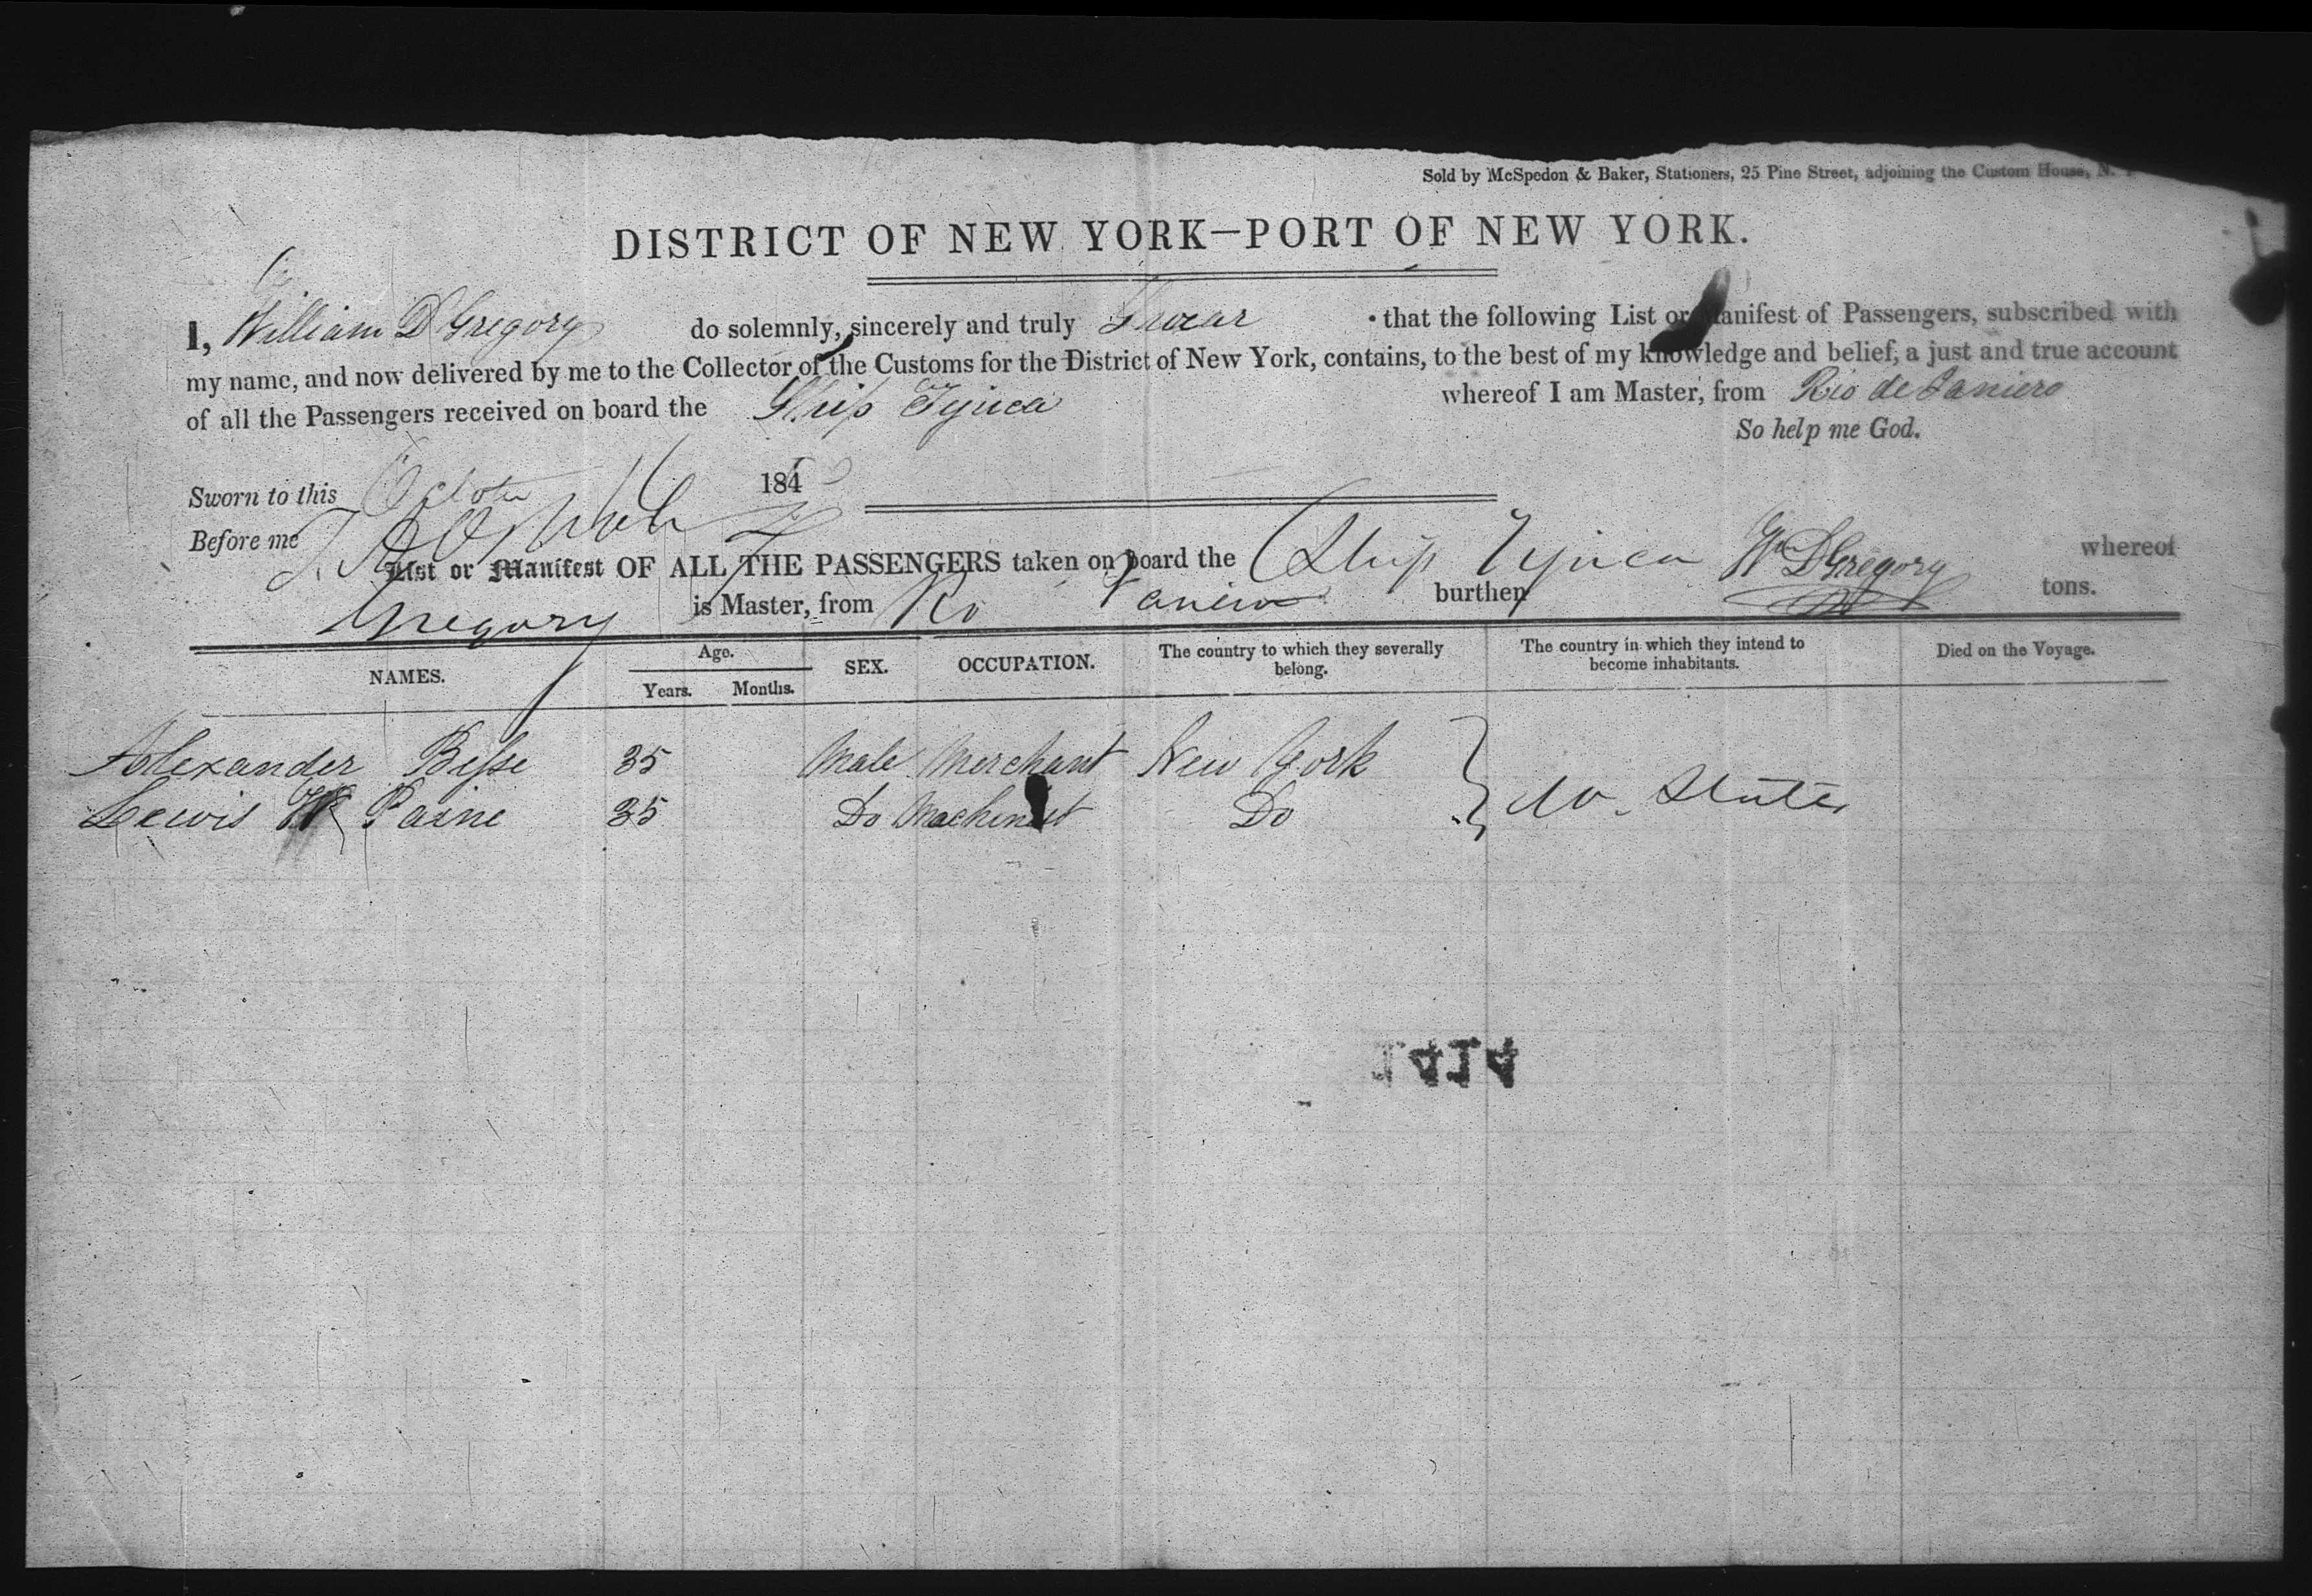 Sold by McSpedon & Baker, Stationers, 25 Pine Street, adjoining the Custom House, N.
DISTRICT OF NEW YORK—PORT OF NEW YORK.
I, William D Gregory do solemnly, sincerely and truly Swear that the following List or Manifest of Passengers, subscribed with
my name, and now delivered by me to the Collector of the Customs for the District of New York, contains, to the best of my knowledge and belief, a just and true account
of all the Passengers received on board the Ship Tijuca whereof I am Master, from Rio de Janiero
So help me God.
Sworn to this October 16 184
Before me
Wm D Gregory
List or Manifest OF ALL THE PASSENGERS taken on board the Ship Tijuca whereof
Gregory is Master, from Rio Janeiro burthen tons.
NAMES. Age. Years. Months. SEX. OCCUPATION. The country to which they severally belong. The country in which they intend to become inhabitants. Died on the Voyage.
Alexander Besse 35 Male Merchant New York
Lewis W Paine 35 Do Machinist Do U. States